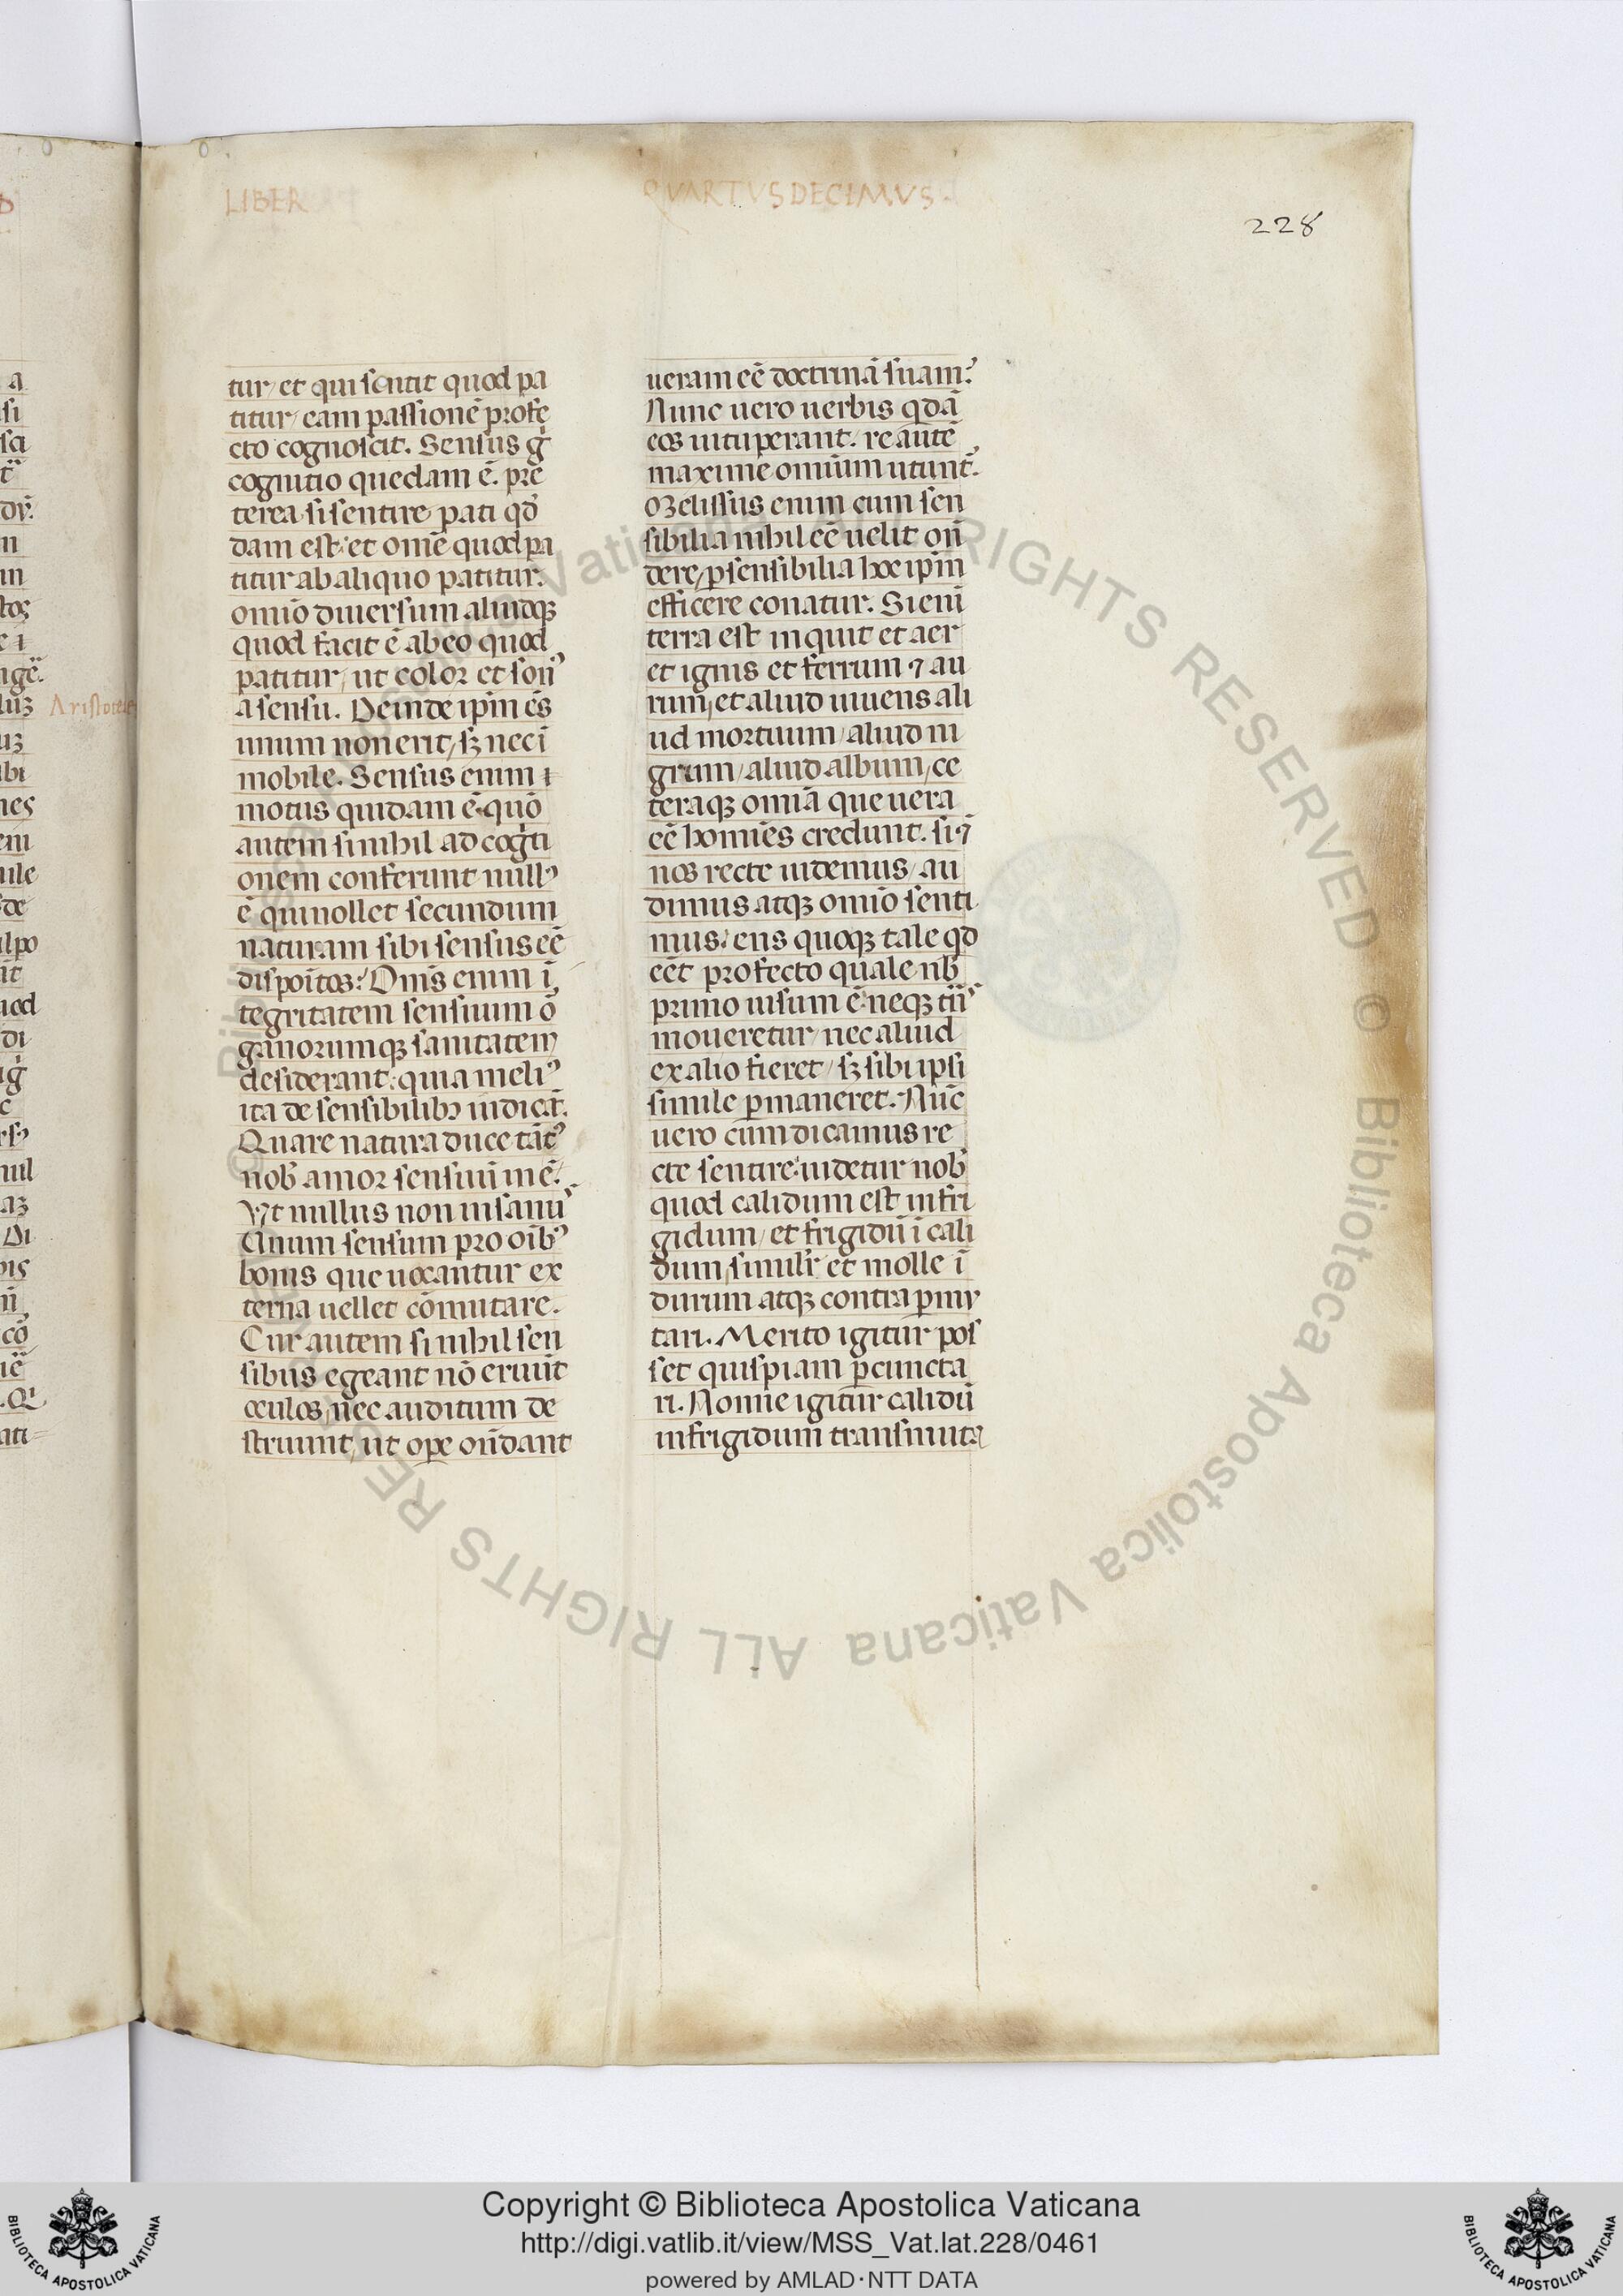 LIBER
QVARTVS DECIMVS
228
tur, et qui sentit quod pa
titur, eam passionē profe
cto cognoscit. Sensus g̍
cognitio quedam ē. pre
terea si sentire pati qd̄
dam est: et omē quod pa
titur ab aliquo patitur.
omīo diuersum aliudqꝫ
quod facit ē ab eo quod
patitur, ut color et son᾽
a sensu. Deinde ipm̄ ēs
unum non erit, sꝫ nec ī
mobile. Sensus enim ī
motus quidam ē. quō
autem si nihil ad cogīti
onem conferunt null᾽
ē qui nollet secundum
naturam sibi sensus eē
dispoītos: Oīns enim ī
tegritatem sensuum ō
ganorumqꝫ sanitatem
desiderant: quia meli᾽
ita de sensibilibꝫ iudicāt.
Quare natura duce tāt᾽
nob̄ amor sensuū inē.
Vt nullus non insanu᾽
Vnum sensum pro oīb᾽
bonis que uocantur ex
terna uellet cōmutare.
Cur autem si nihil sen
sibus egeant nō eruūt
oculos, nec auditum de
struunt, ut ope on̄dant
ueram eē doctrinā suam?
Nunc uero uerbis qdā
eos uituperant. re autē
maxime omīum utunt̄.
Melissus enim cum sen
sibilia nihil eē uelit on̄
dere, ꝑ sensibilia hoc ipm̄
efficere conatur. Si enī
terra est inquit et aer
et ignis et ferrum ⁊ au
rum, et aliud uiuens ali
ud mortuum, aliud ni
grum, aliud album, ce
teraqꝫ omīa que uera
eē homīes credunt. si ⁊
nos recte uidemus, au
dimus atqꝫ omīo senti
mus: ens quoqꝫ tale qd
eēt profecto quale nb̄
primo uisum ē: neqꝫ
moueretur, nec aliud
ex alio fieret, sꝫ sibi ipsi
simile ꝑmaneret. Nūc
uero cum dicamus re
cte sentire: uidetur nob̄
quod calidum est in fri
gidum, et frigidū ī cali
dum, simulr̄ et molle ī
durum atqꝫ contra ꝑmu
tari. Merito igitur pos
set quispiam ꝑcuncta
ri. Nonne igitur calidū
in frigidum transmuta
Aristoteles
© Biblioteca Apostolica Vaticana ALL RIGHTS RESERVED
Copyright © Biblioteca Apostolica Vaticana
http://digi.vatlib.it/view/MSS_Vat.lat.228/0461
powered by AMLAD·NTT DATA
BIBLIOTECA APOSTOLICA VATICANA
BIBLIOTECA APOSTOLICA VATICANA